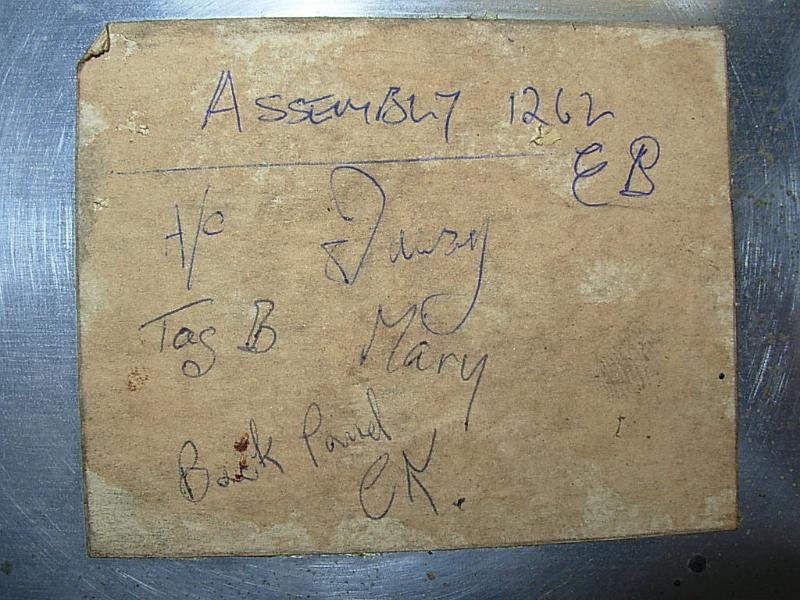 ASSEMBLY 1262
EB
T/C
Tag B Mary
Back Panel
CK.